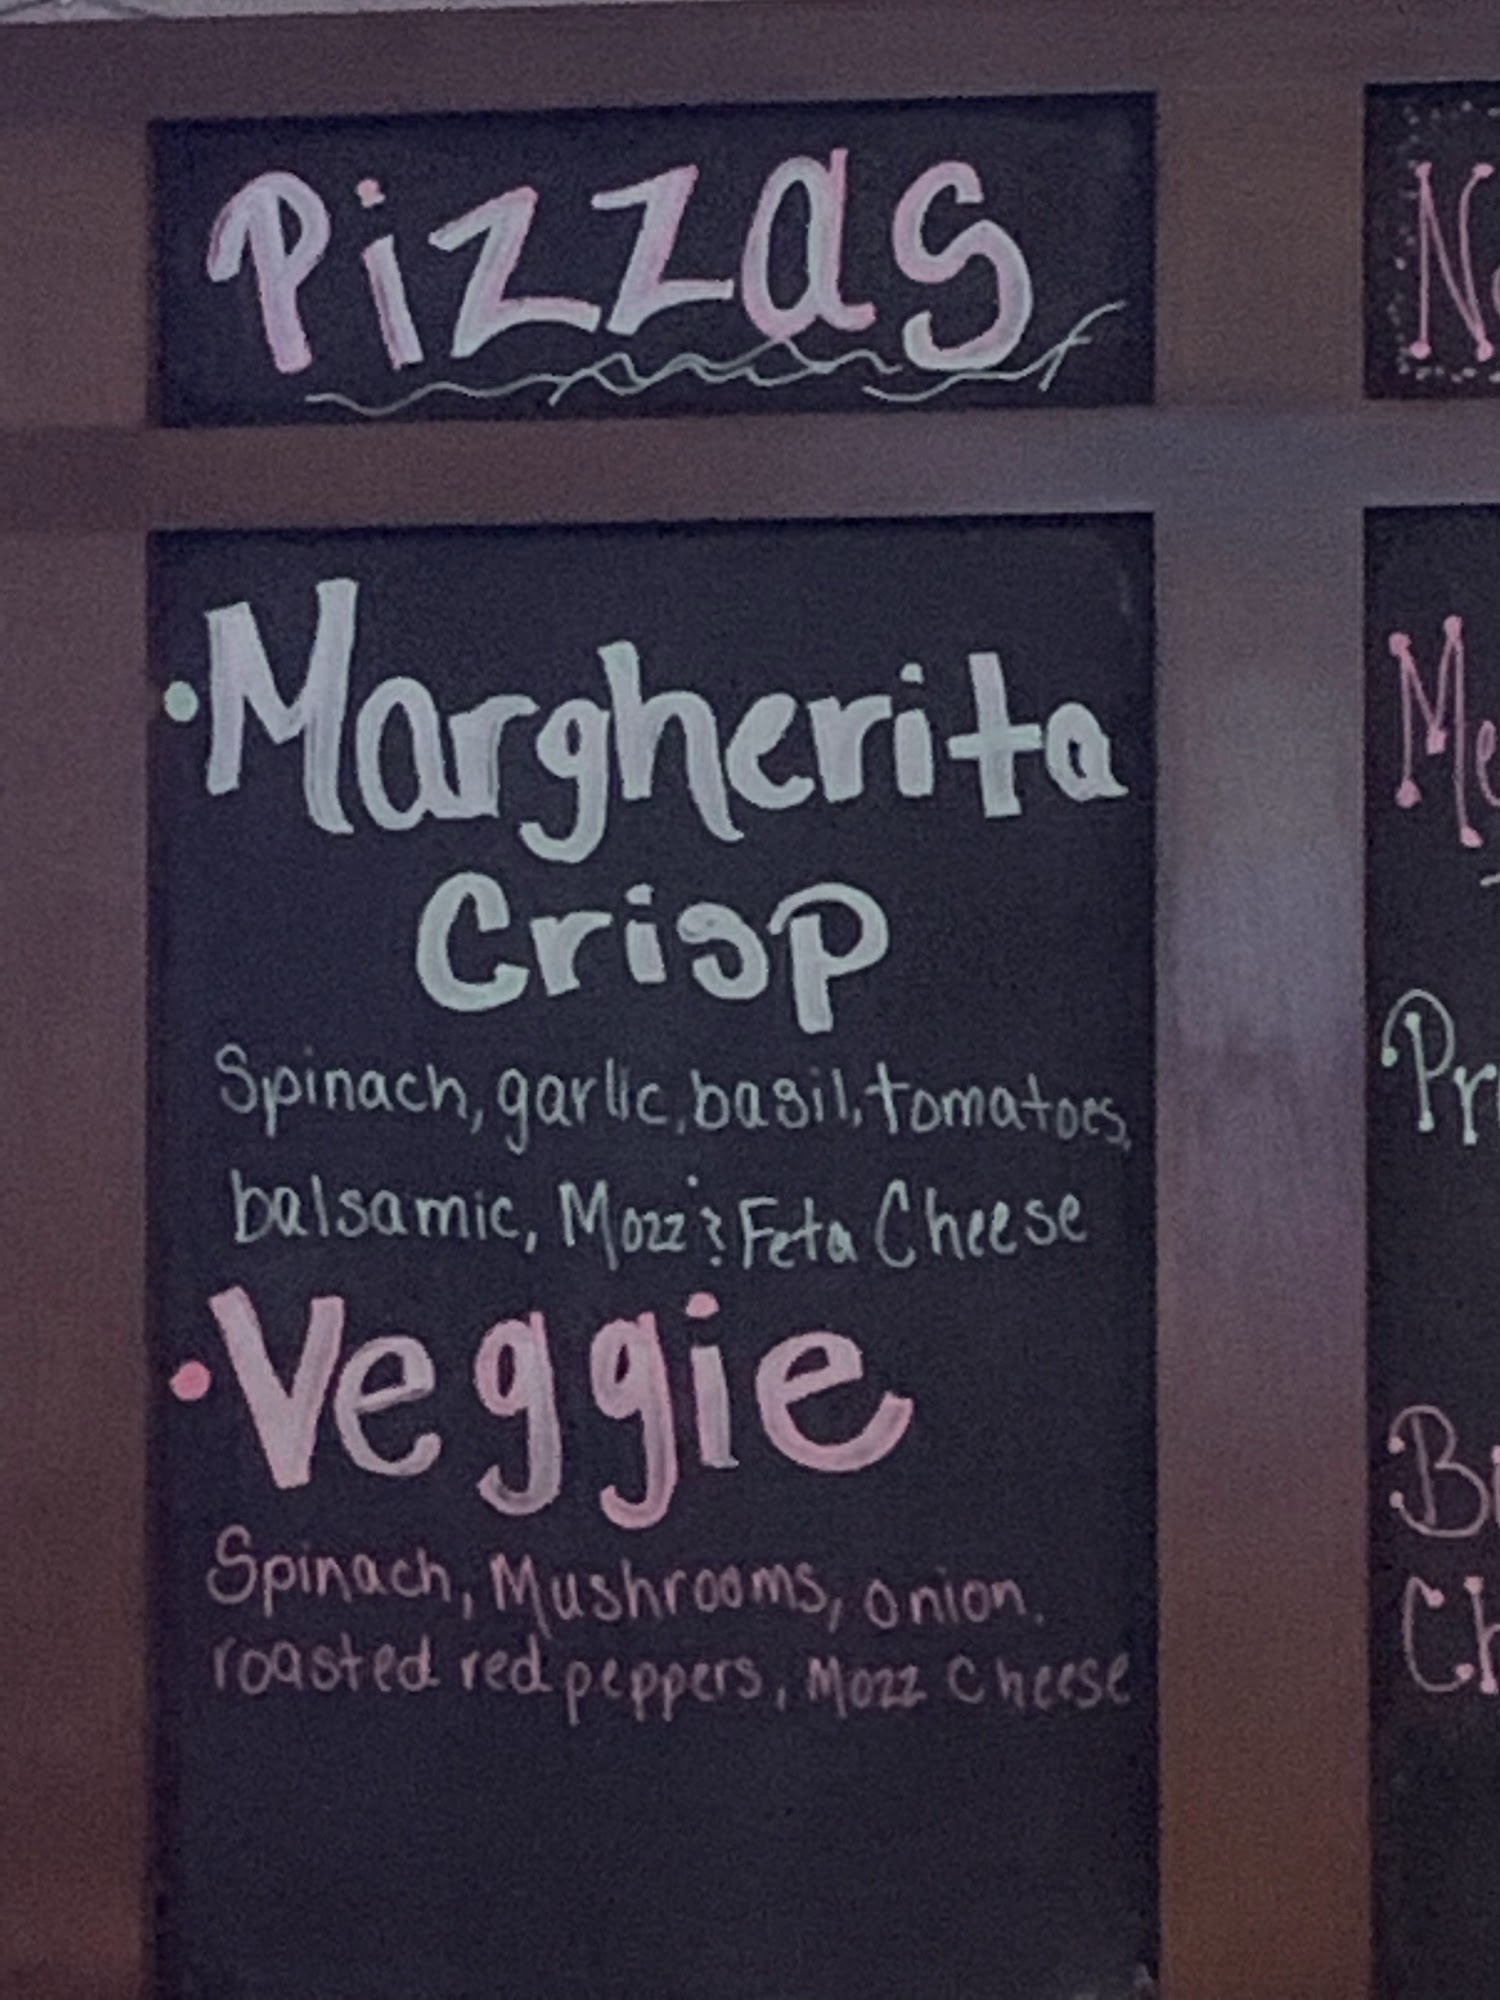 Pizzas
•Margherita
Crisp
Spinach, garlic, basil, tomatoes,
balsamic, Mozz & Feta Cheese
•Veggie
Spinach, Mushrooms, onion.
roasted red peppers, Mozz Cheese